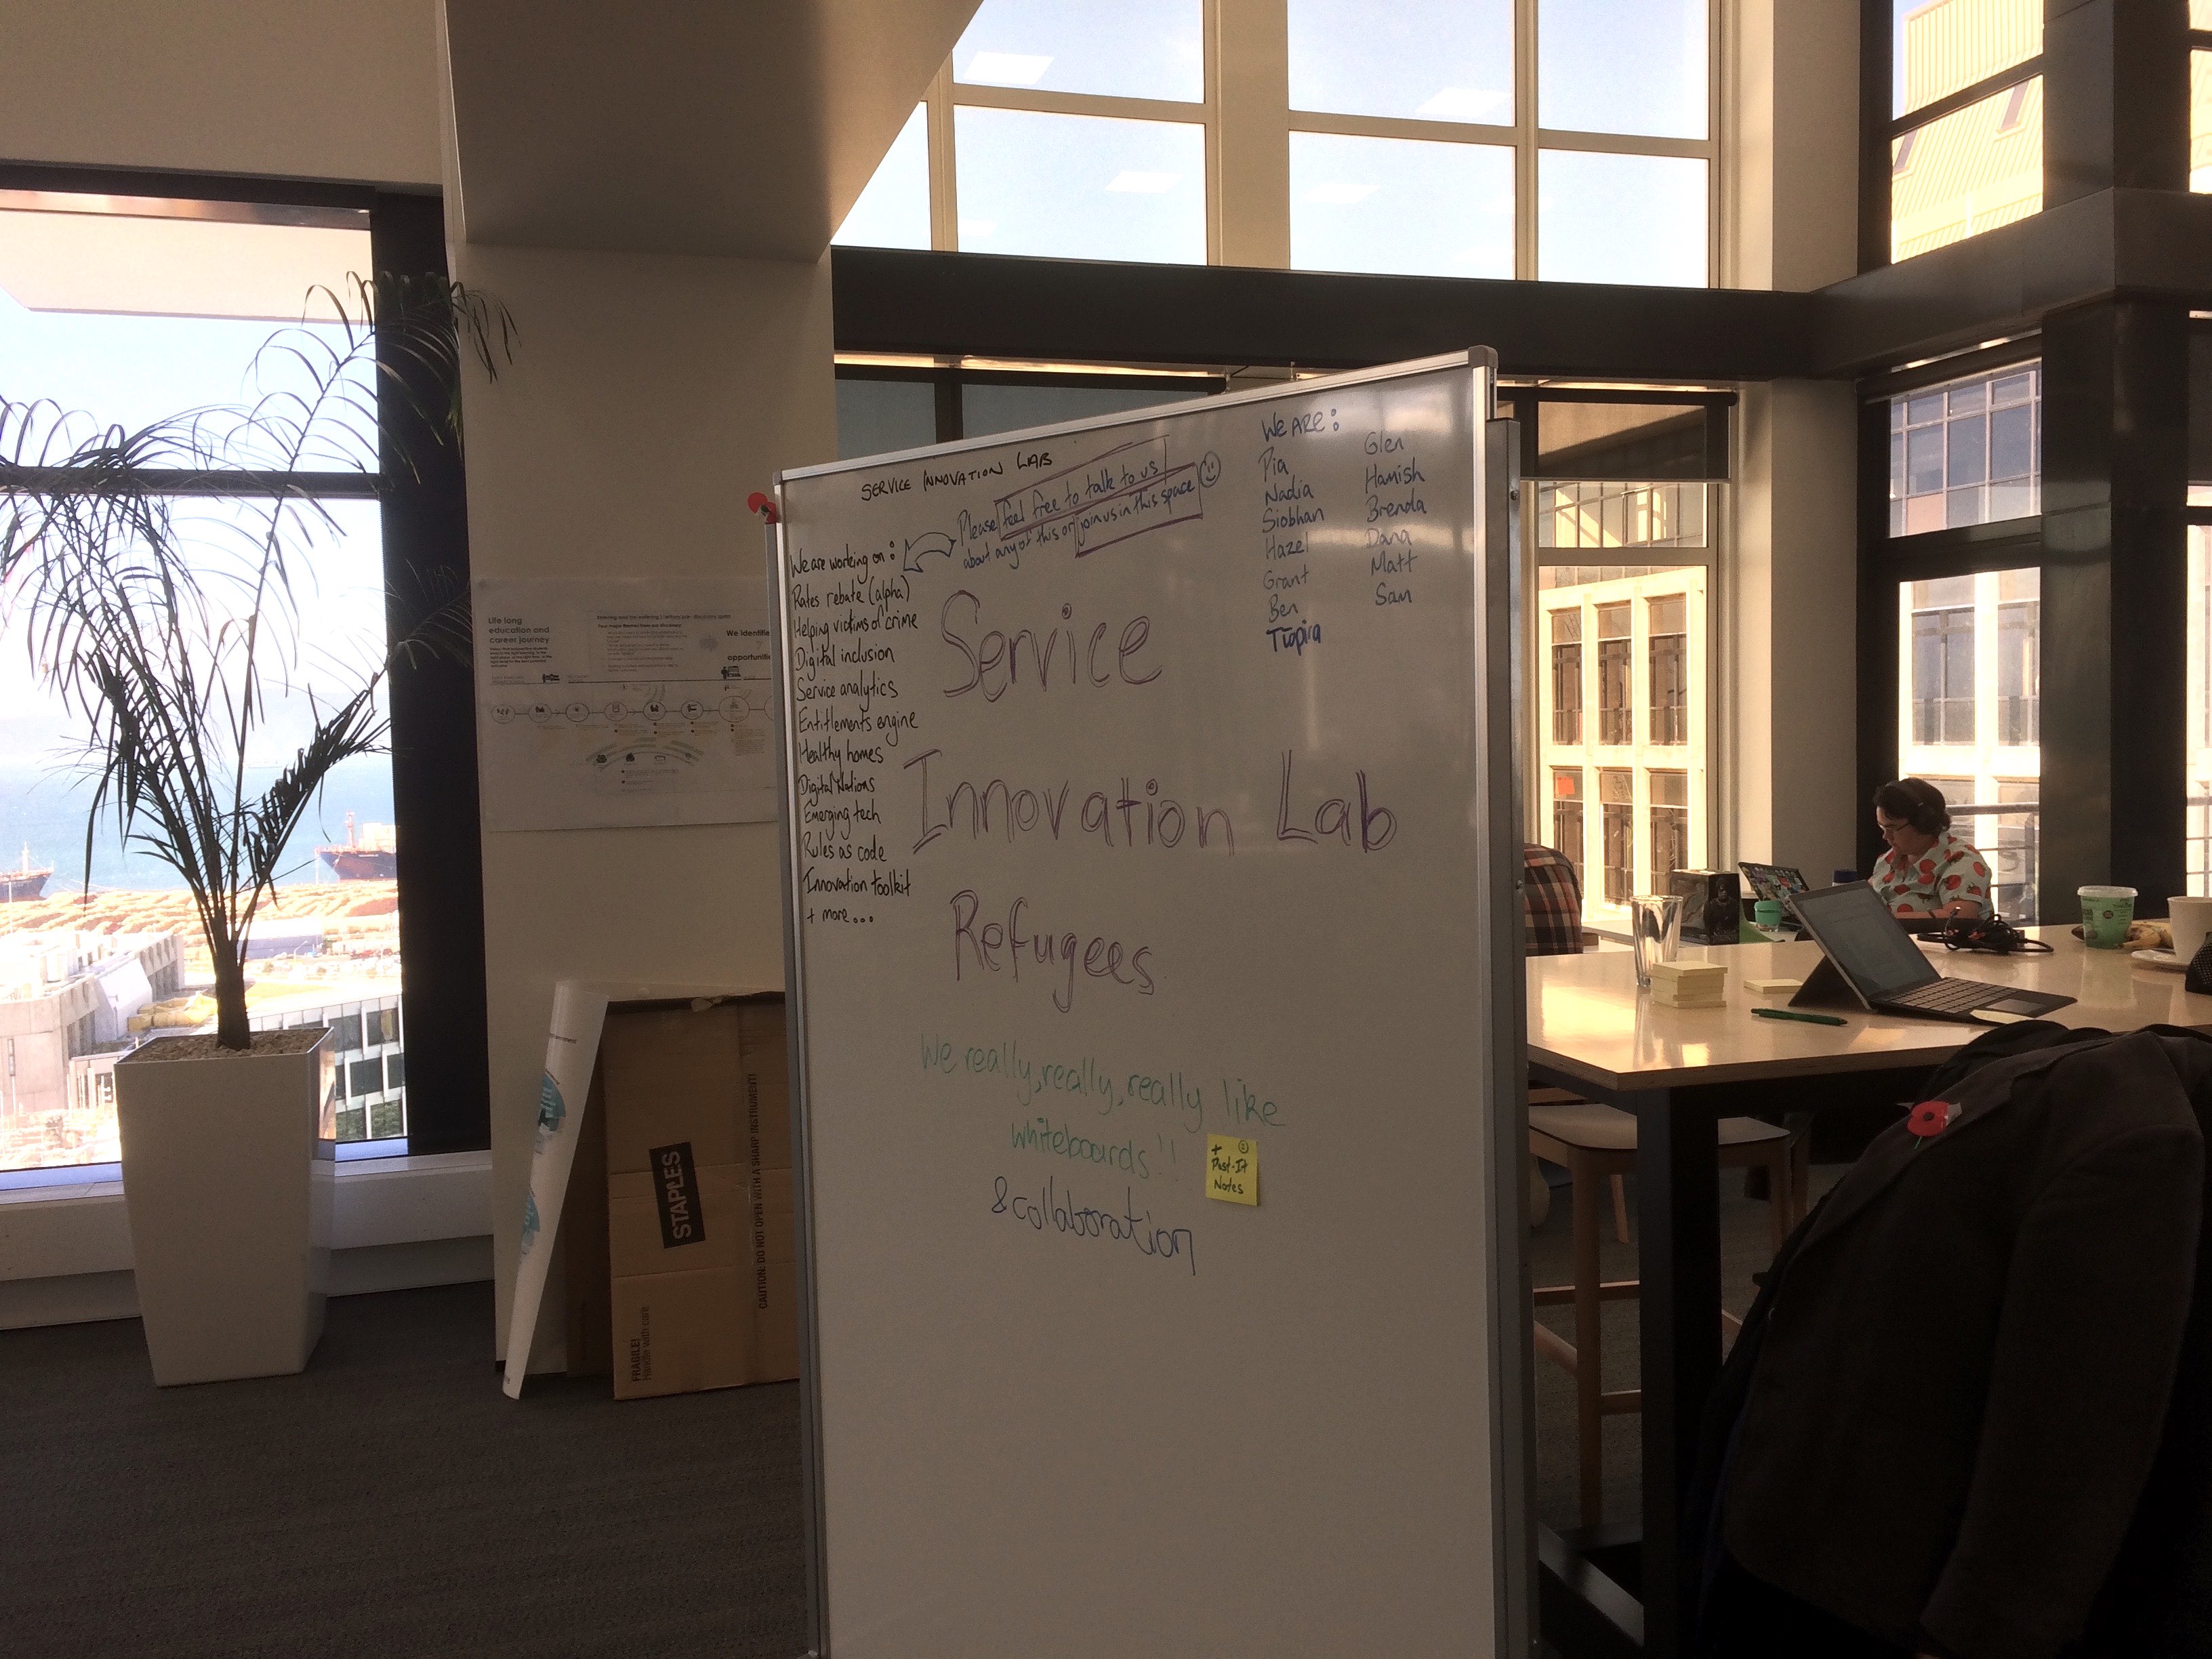 SERVICE INNOVATION LAB
Please feel free to talk to us
about any of this or join us in this space
We are working on:
Rates rebate (alpha)
Helping victims of crime
Digital inclusion
Service analytics
Entitlements engine
Healthy homes
Digital Nations
Emerging tech
Rules as code
Innovation toolkit
+ more...
WE ARE:
Pia
Nadia
Siobhan
Hazel
Grant
Ben
Tūpira
Glen
Hamish
Brenda
Dana
Matt
Sam
Service
Innovation Lab
Refugees
We really, really, really like
whiteboards!!
+
Post-It
Notes
& collaboration
Life long
education and
career journey
We identified
opportunities
STAPLES
CAUTION: DO NOT OPEN WITH A SHARP INSTRUMENT!
FRAGILE!
Handle with care